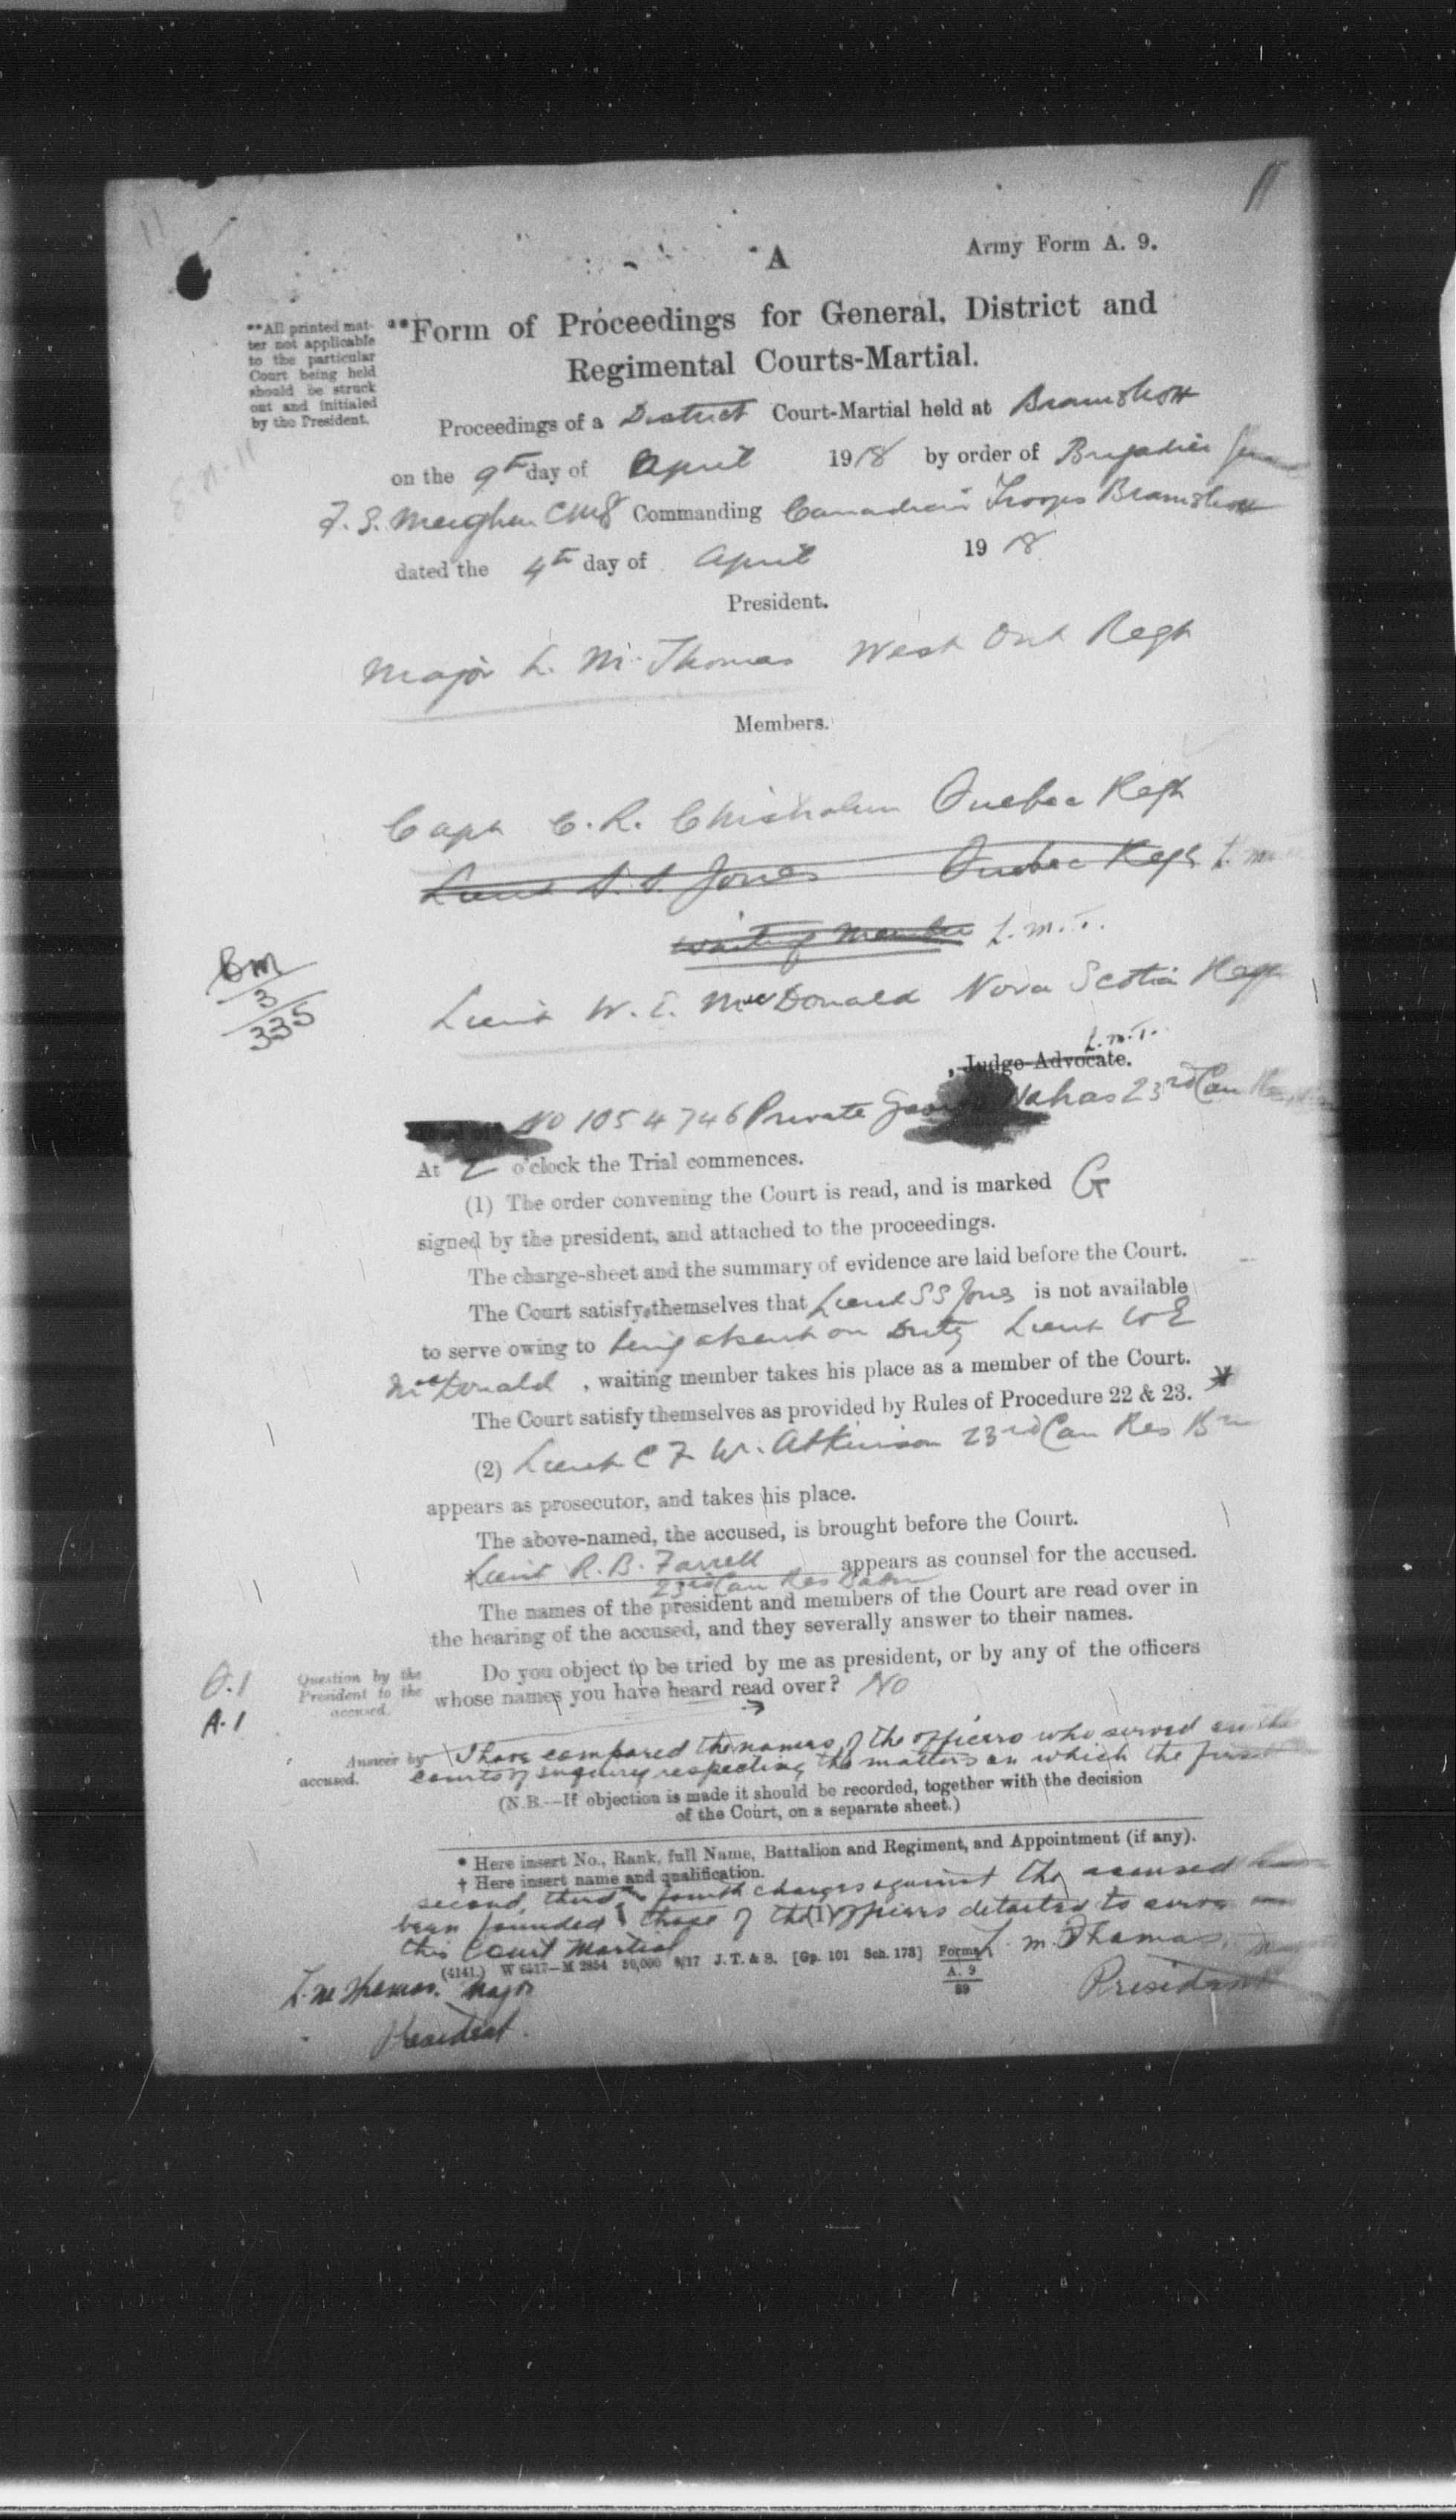 11
A
Army Form A. 9.
**All printed mat-
ter not applicable
to the particular
Court being held
should be struck
out and initialed
by the President.
**Form of Proceedings for General, District and
Regimental Courts-Martial.
Proceedings of a District Court-Martial held at Bramshott
on the 9th day of April 1918 by order of Brigadier
F. S. Meighen CMG Commanding Canadian Troops Bramshott
dated the 4th day of April 1918
President.
Major L. M. Thomas West Ont Regt
Members.
Capt C. R. Chisholm Quebec Regt
Lieut S. S. Jones Quebec Regt L. m.
Waiting Member L. m. T.
Lieut W. E. MacDonald Nova Scotia Regt
Bm
3
335
L. m. T.
Judge-Advocate.
No 1054746 Private George Nahas 23rd Can
At 2 o'clock the Trial commences.
(1) The order convening the Court is read, and is marked G
signed by the president, and attached to the proceedings.
The charge-sheet and the summary of evidence are laid before the Court.
The Court satisfy themselves that Lieut S S Jones is not available
to serve owing to being absent on Duty Lieut W E
MacDonald , waiting member takes his place as a member of the Court.
The Court satisfy themselves as provided by Rules of Procedure 22 & 23. *
(2) Lieut C F W. Atkinson 23rd Can Res Bn
appears as prosecutor, and takes his place.
The above-named, the accused, is brought before the Court.
Lieut R. B. Farrell appears as counsel for the accused.
23rd Can Res Battn
The names of the president and members of the Court are read over in
the hearing of the accused, and they severally answer to their names.
Q.1
Question by the
President to the
accused.
Do you object to be tried by me as president, or by any of the officers
whose names you have heard read over? No
A.1
Answer by
accused.
I have compared the names of the officers who served on the
courts of inquiry respecting the matters on which the first
(N.B.—If objection is made it should be recorded, together with the decision
of the Court, on a separate sheet.)
* Here insert No., Rank, full Name, Battalion and Regiment, and Appointment (if any).
† Here insert name and qualification.
second, third & fourth charges against the accused
been founded & those of the officers detailed to serve on
this Court Martial
(4141.) W 6517—M 2854 50,000 8/17 J. T. & S. [Gp. 101 Sch. 173] Forms
A. 9
89
L. m. Thomas,
President
L. M Thomas. Major
President.